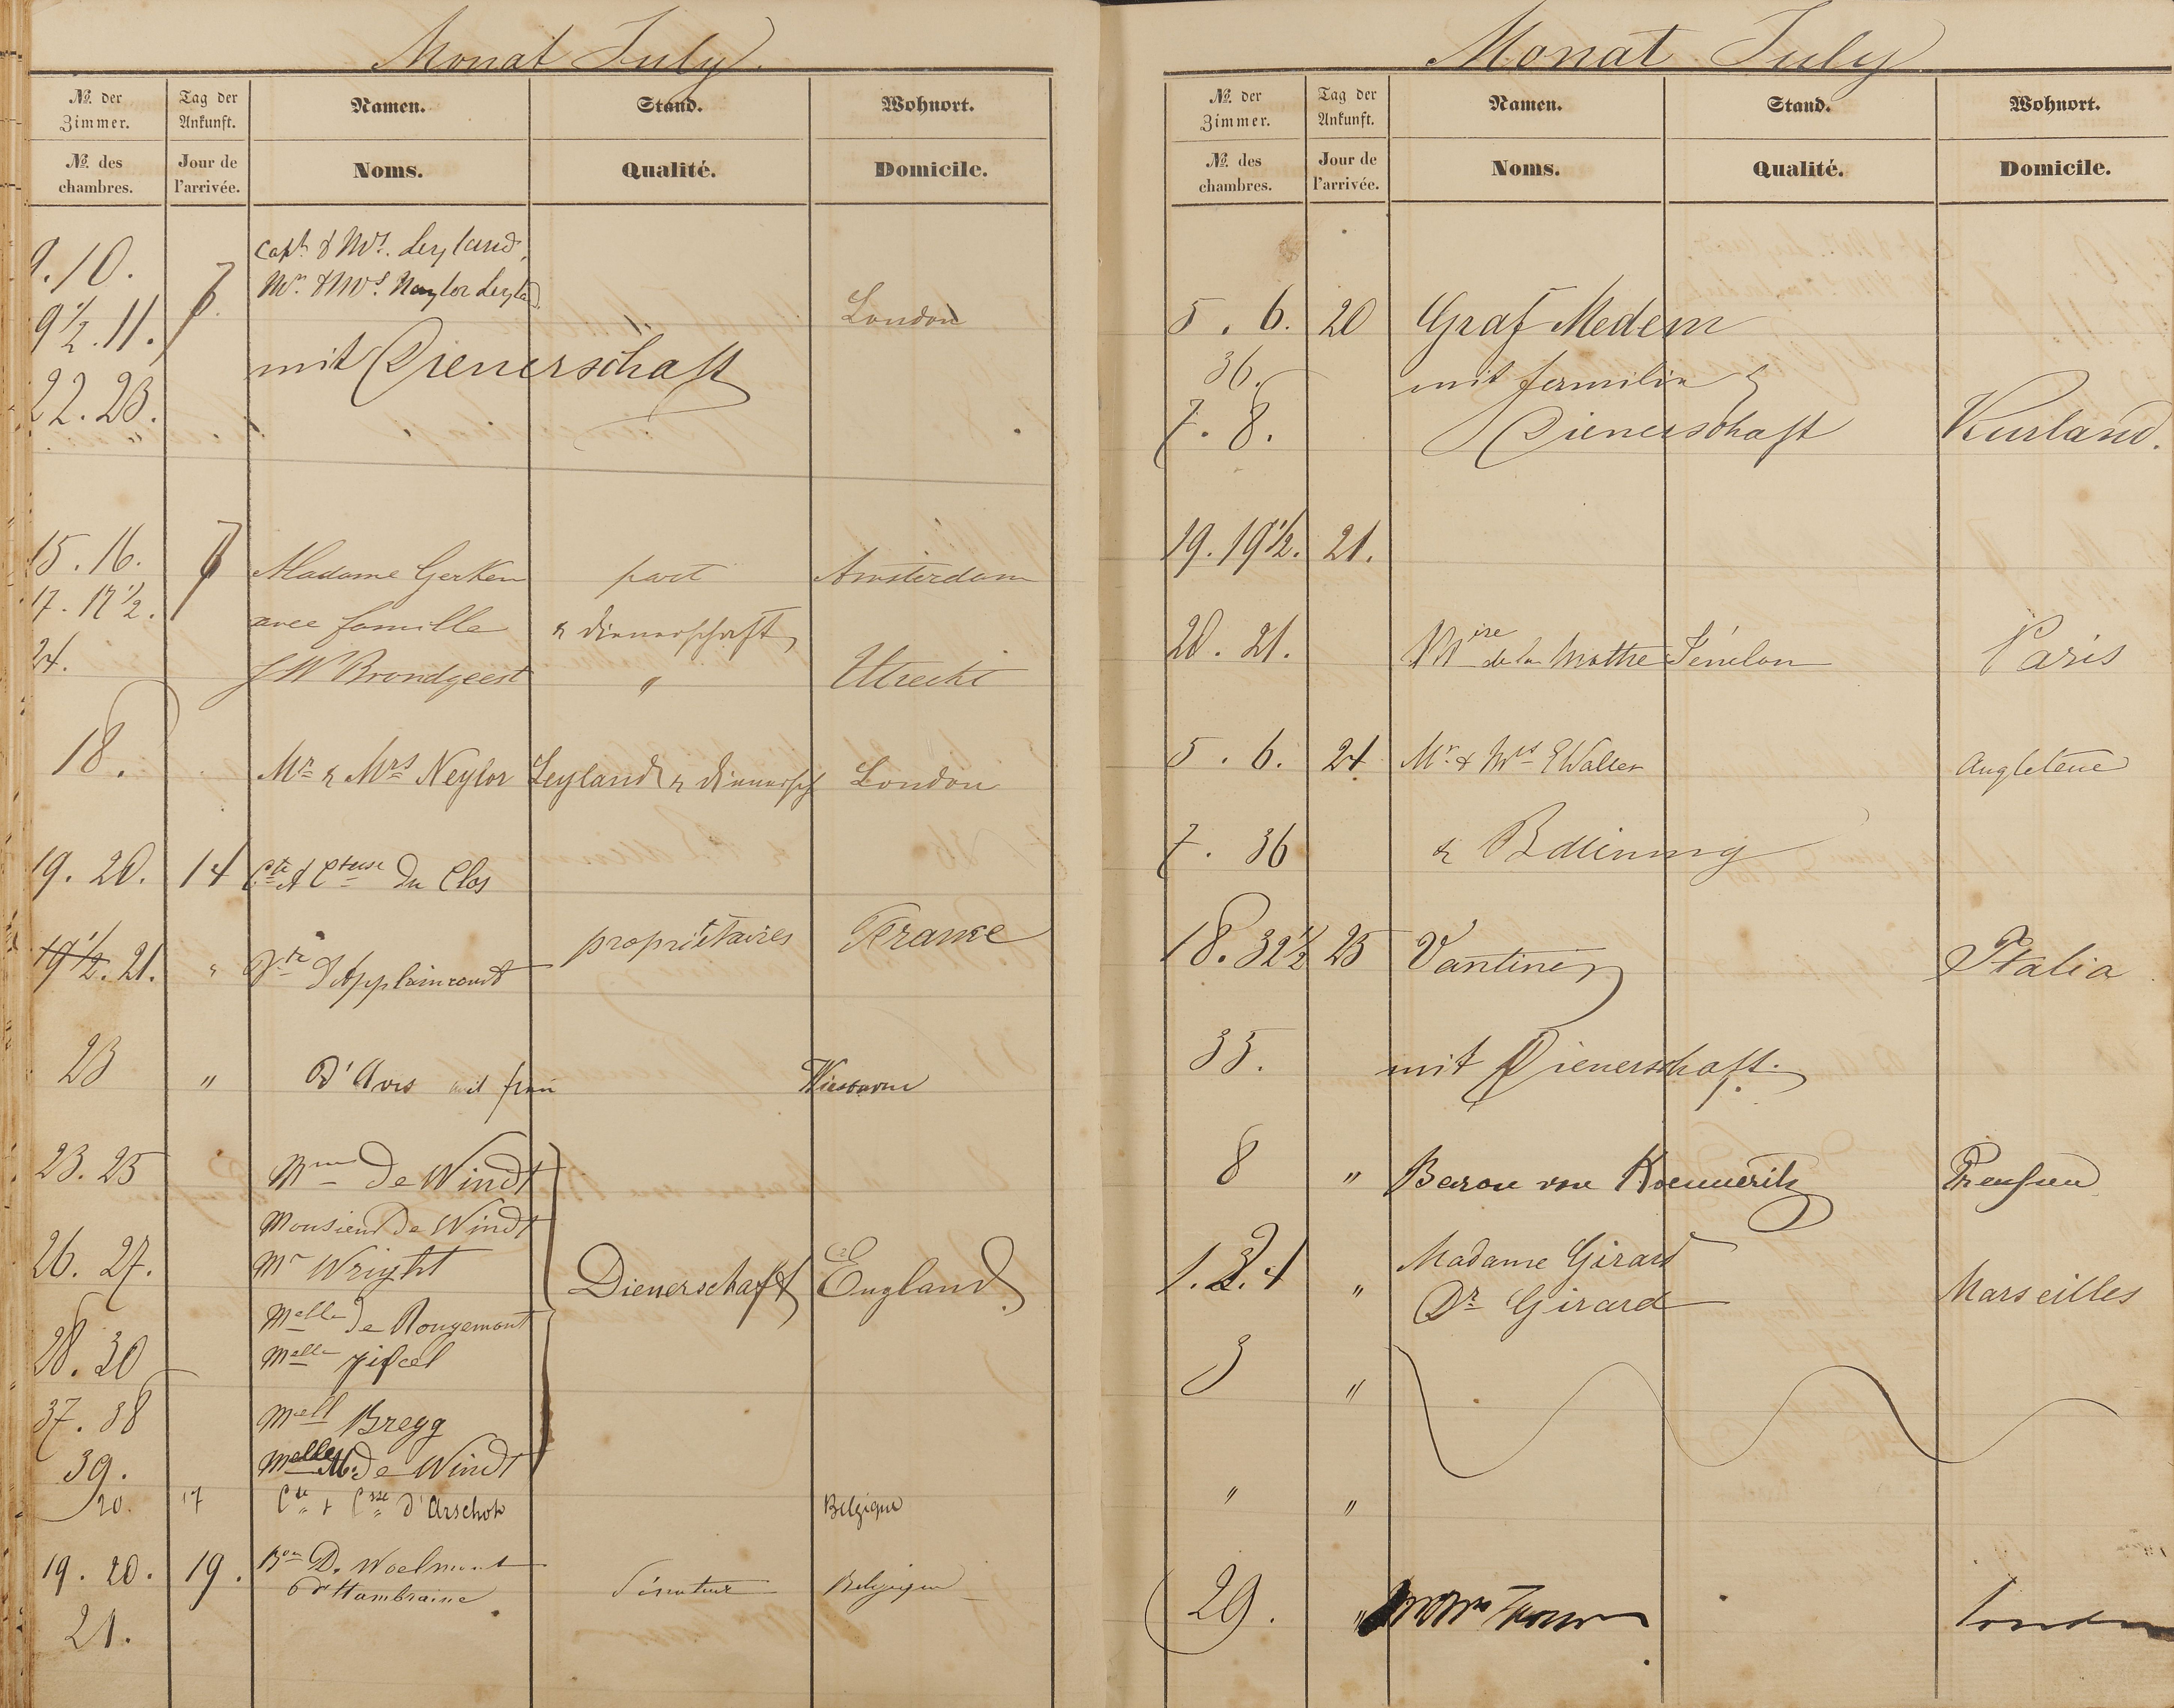 Monat July.
No. der Zimmer. Tag der Ankunft. Namen. Stand. Wohnort.
No. des chambres. Jour de l'arrivée. Noms. Qualité. Domicile.
Capt. & Mrs. Leyland,
9.10.
Mr. & Mrs. Naylor Leyland
9 1/2. 11. London
mit Dienerschaft
22. 23.
15. 16. Madame Gerken part Amsterdam
17. 17 1/2. avec famille & Dienerschaft
24. J W Brondgeest " Utrecht
18. Mr & Mrs Neylor Leyland & Dienersch London
19. 20. 14 Cte & Ctesse du Clos
propriétaires France
19 1/2. 21. " Vte d'Applaincourt
23 " D'Avis mit frau
23. 25 Mme de Windt
Monsieur de Windt
26. 27. Mr Wright Dienerschaft England
Melle de Rougemont
28. 30 Melle
37. 38 Mell Bregg
39. Melle M. de Windt
20. 17 Cte & Csse d'Arschot Belgique
19. 20. 19. Bon D. Woelmont Sénateur Belgique
d'Hambraine
21.
Monat July
No. der Zimmer. Tag der Ankunft. Namen. Stand. Wohnort.
No. des chambres. Jour de l'arrivée. Noms. Qualité. Domicile.
5. 6. 20 Graf Medem
36. mit familie &
7. 8. Dienerschaft Kurland.
19. 19 1/2. 21.
20. 21. Mire de la Mothe Fénelon Paris
5. 6. 24 Mr & Mrs E Walter Angleterre
7. 36 &
18. 32 1/2 25 Vantini Italia
35. mit Dienerschaft.
8 " Baron von Koenneritz Preußen
Madame Girard
1. 2. 4 " Marseilles
Dr Girard
3 "
" "
29. " London